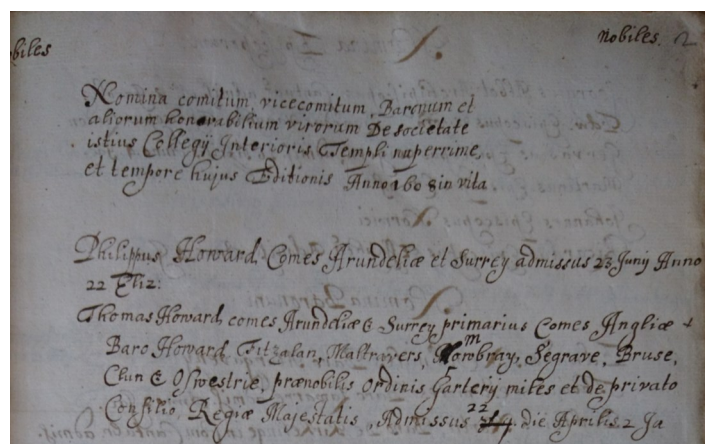 obiles
S.
nobiles. 2
Nomina comitum vicecomitum, Baronum et
aliorum honorabilium virorum De societate
istius Collegij Interioris Templi naperrime,
et tempore hujus Editionis Anno 160 8 in vita
S.
Philippus Howard, Comes Arundeliæ et Surrey admissus 23 Junij Anno
22 Eliz:
Thomas Howard, comes Arundeliæ & Surrey primarius Comes Angliæ
Baro Howard Fitzalan, Maltravers, Mowbray, Segrave, Bruse,
Clun & Oswestrie, prænobilis ordinis Garterij miles et de privato
Consilio, Regiæ Majestatis, Admissus 22 die Aprilis 2 Ja